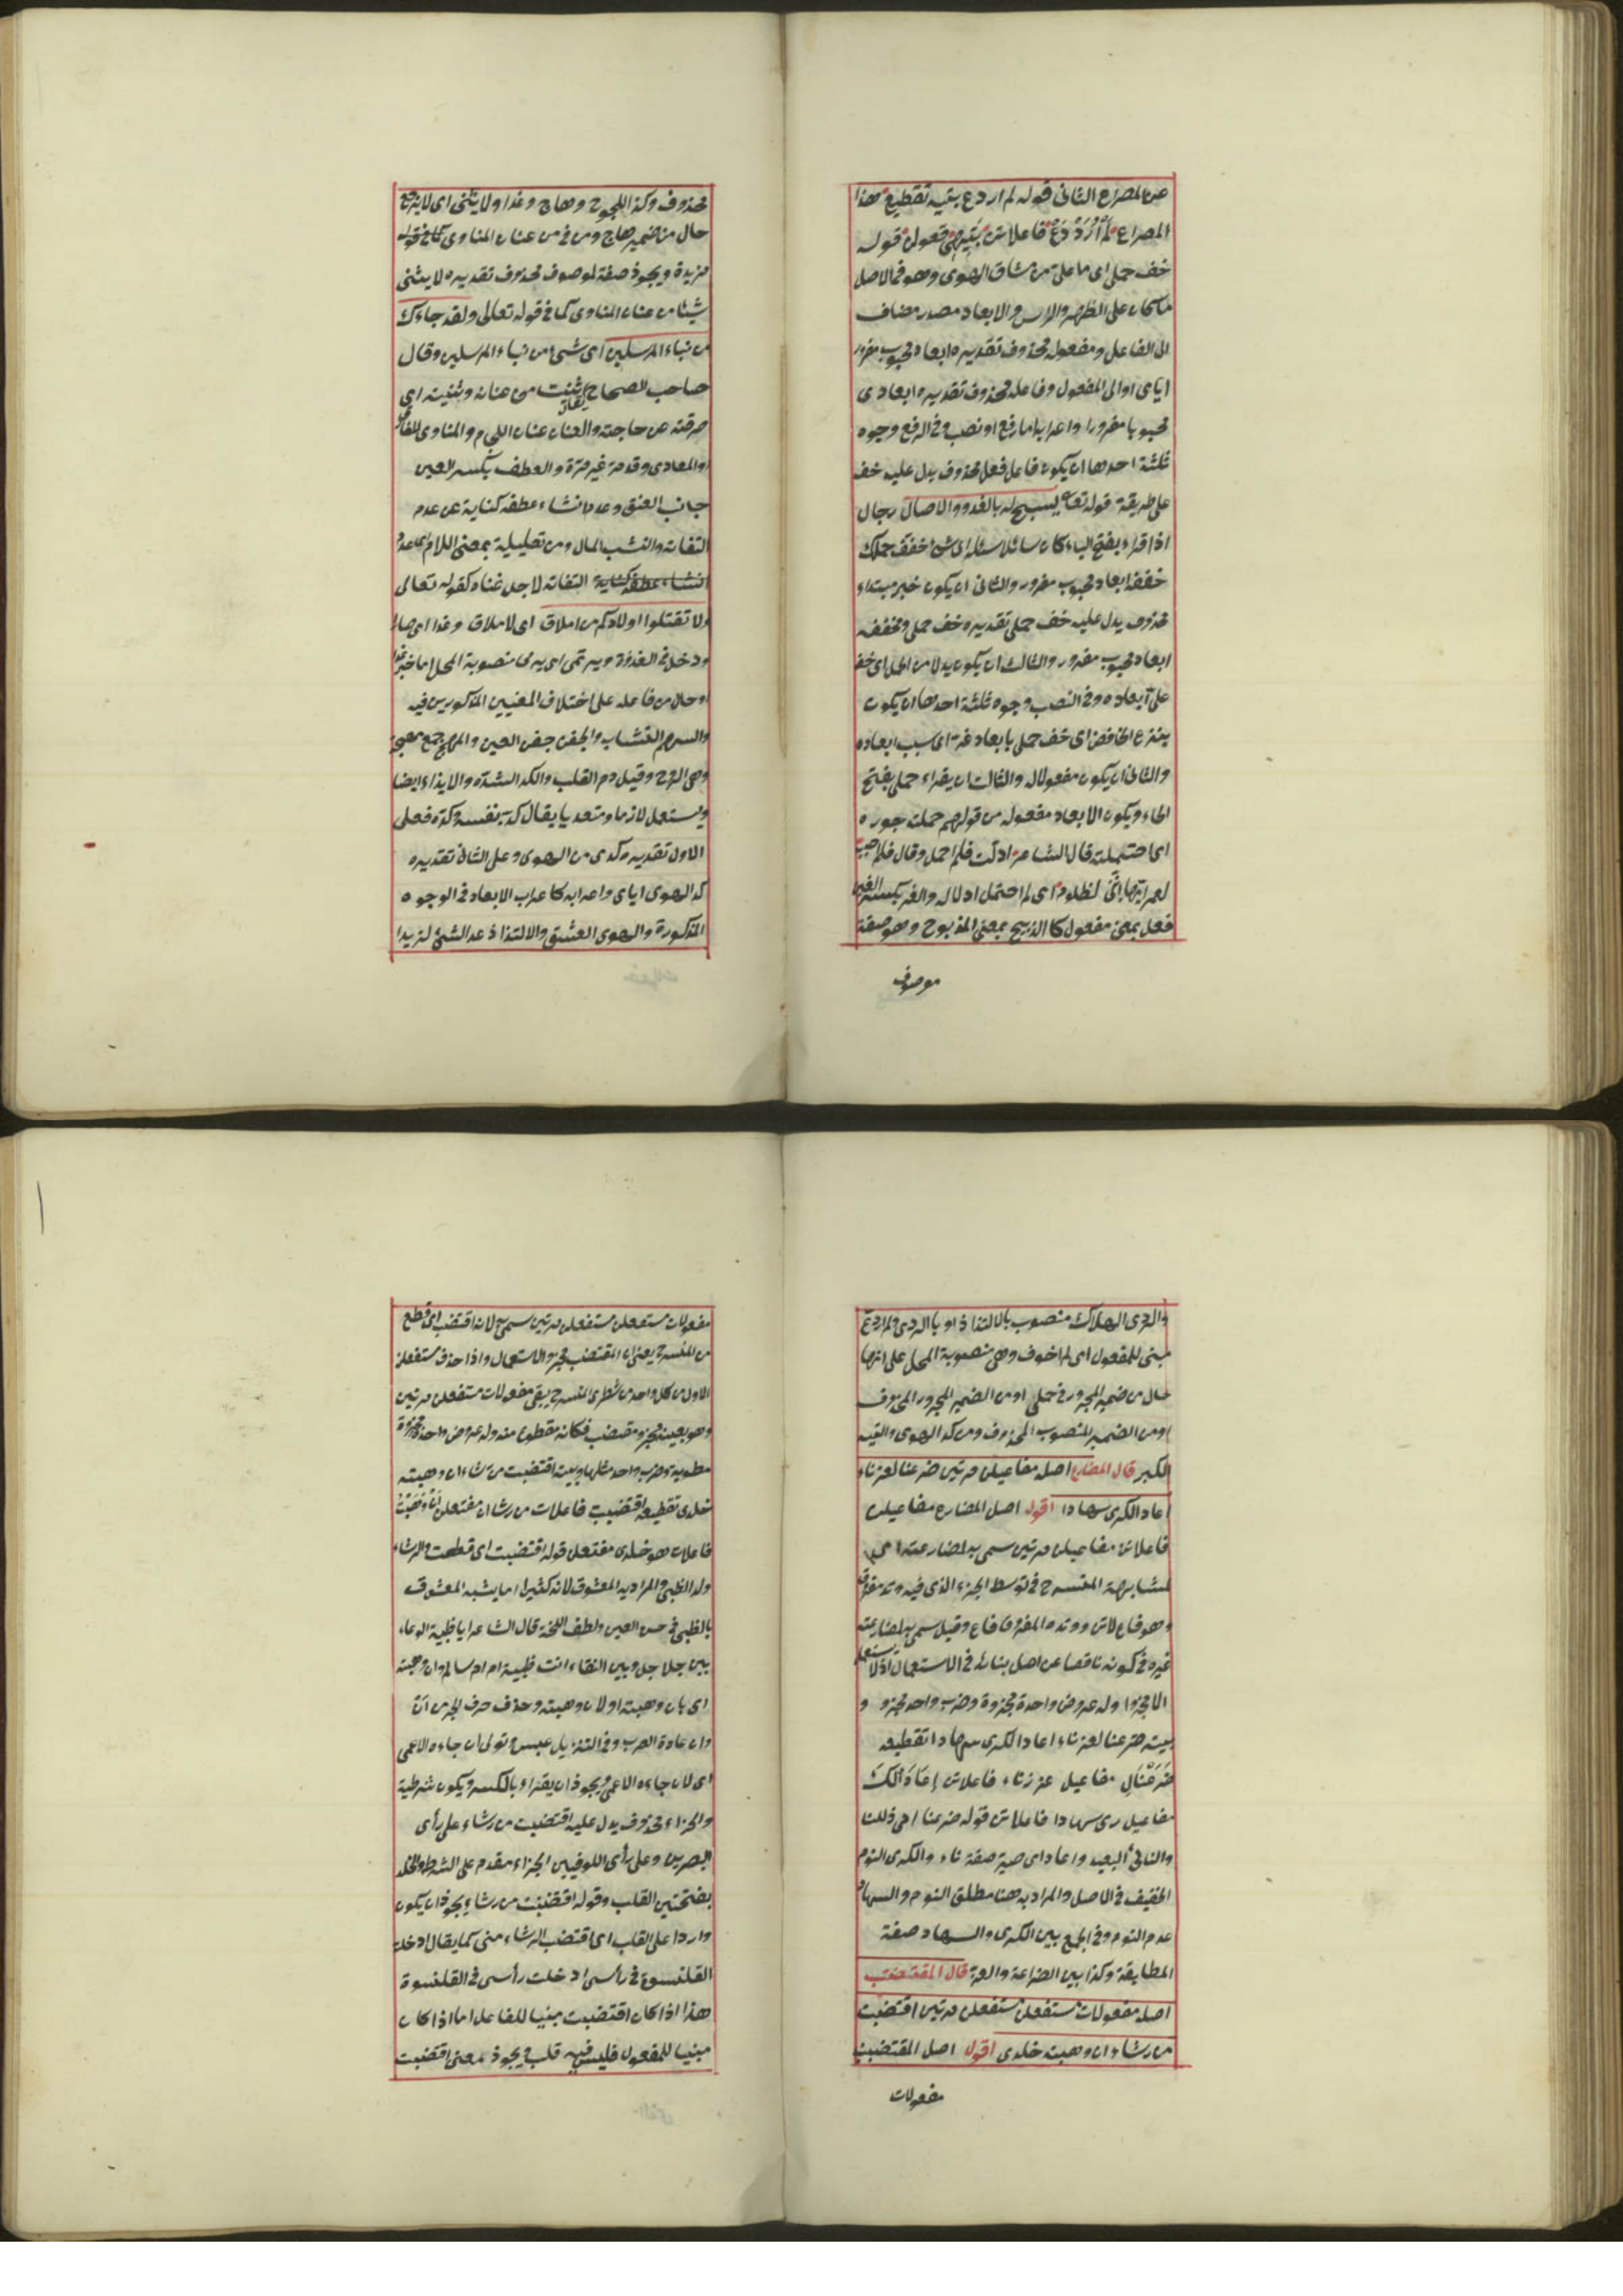 عن المصراع الثانى قوله لم اردع بتيه تقطيع هذا
المصراع لم أُرَدْ دَعْ فاعلاتن بتيهى فعولن قوله
خف حملى اى ما على من مشاق الهوى وهو فى الاصل
ما كان على الظهر والراس والابعاد مصدر مضاف
الى الفاعل ومفعوله محذوف تقديره ابعاد محبوب مغرور
اياى او الى المفعول وفاعله محذوف تقديره ابعادى
محبوبا مغرورا واعرابه اما رفع او نصب وفى الرفع وجوه
ثلثة احدها ان يكون فاعل فعل محذوف يدل عليه خف
على طريقة قوله تعا يسبح له بالغدو والاصال رجال
اذا قراء بفتح الباء كان سائلا سئله اى شئ اخفف حملك
خففه ابعاد محبوب مغرور والثانى ان يكون خبر مبتداء
محذوف يدل عليه خف حملى تقديره خف حملى ومخففه
ابعاد محبوب مغرور والثالث ان يكون بدلا من الحمل اى خف
على ابعاده وفى النصب وجوه ثلثة احدها ان يكون
بنزع الخافض اى خف حملى بابعاد غر اى سبب ابعاده
والثانى ان يكون مفعولا له والثالث ان يقراء حملى بفتح
الحاء ويكون الابعاد مفعوله من قولهم حملت جوره
اى احتملته قال الشاعر ادلت فلم احمل وقال فلم اجب
لعمر ابيها اننى لظلوم اى لم احتمل ادلاله والغر بكسر الغين
فعل بمعنى مفعول كالذبح بمعنى المذبوح وهو صفة
موصوف
محذوف وكذا اللجوج وهاج وغدا ولا يثنى اى لا يرجع
حال من ضمير هاج ومن فى من عنان المناوى كما فى قوله
مزيدة ويجوز صفة لموصوف محذوف تقديره لا يثنى
شيئا من عنان المناوى كما فى قوله تعالى ولقد جاءك
من نباء المرسلين اى شئ من نباء المرسلين وقال
صاحب الصحاح يقال ثنيت من عنانه وثنيته اى
صرفته عن حاجته والعنان عنان اللجام والمناوى
والمعادى وقد مر غير مرة والعطف بكسر العين
جانب العنق وعدم انثناء عطفه كناية عن عدم
التفاته والنشب المال ومن تعليلية بمعنى اللام اى عدم
انثناء عطفه كناية التفاته لاجل غناه كقوله تعالى
ولا تقتلوا اولادكم من املاق اى لاملاق وغدا اى صار
ودخل فى الغدوة ويرتمى اى يرمى منصوبة المحل اما خبر غدا
او حال من فاعله على اختلاف المعنيين المذكورين فيه
والسهم النشاب والجفن جفن العين والمهج جمع مهجة
وهى الروح وقيل دم القلب والكد الشدة والايذاء ايضا
ويستعمل لازما ومتعديا يقال كد بنفسه وكده فعلى
الاول تقديره كدى من الهوى وعلى الثانى تقديره
كد الهوى اياى واعرابه كاعراب الابعاد فى الوجوه
المذكورة والهوى العشق والالتذاذ عد الشئ لذيذا
والردى الهلاك منصوب بالالتذاذ او بالردى ولم اردع
مبنى للمفعول اى لم اخوف وهى منصوبة المحل على انها
حال من ضمير المجرور فى حملى او من الضمير المجرور المحذوف
او من الضمير المنصوب المحذوف ومن كد الهوى والتيه
الكبر قال المضارع اصله مفاعيلن مرتين ضرعنا لعز ناء
اعاد الكرى سهادا اقول اصل المضارع مفاعيلن
فاعلاتن مفاعيلن مرتين سمى به لمضارعته اى
لمشابهة المنسرح فى توسط الجزء الذى فيه وتد مفروق
وهو فاع لاتن ووتده المفروق فاع وقيل سمى به لمضارعته
غيره فى كونه ناقصا عن اصل بنائه فى الاستعمال اذ لا يستعمل
الا مجزوا وله عروض واحدة مجزوة وضرب واحد مجزو و
بيته ضرعنا لعز ناء اعاد الكرى سهادا تقطيعه
ضَرَعْنَالِ مفاعيل عززناء فاعلاتن اِعَادَ الكَ
مفاعيل رى سهادا فاعلاتن قوله ضرعنا اى ذللنا
والنائى البعيد واعاد اى صير صفة ناء والكرى النوم
الخفيف فى الاصل والمراد به هنا مطلق النوم والسهاد
عدم النوم وفى الجمع بين الكرى والسهاد صفة
المطابقة وكذا بين الضراعة والعزة قال المقتضب
اصله مفعولات مستفعلن مستفعلن مرتين اقتضبت
من رشاء ان وهبته خلدى اقول اصل المقتضب
مفعولات
مفعولات مستفعلن مستفعلن مرتين سمى به لانه اقتضب اى قطع
من المنسرح يعنى ان المقتضب مجزو الاستعمال واذا حذف مستفعلن
الاول من كل واحد من شطرى المنسرح يبقى مفعولات مستفعلن مرتين
وهو بعينه مجزو مقتضب فكانه مقطوع منه وله عروض واحدة مجزوة
مطوية وضرب واحد مثلها وبيته اقتضبت من رشاء ان وهبته
خلدى تقطيعه اقتضبت فاعلات من رشاان مفتعلن اَنْ وَهَبْتُ
فاعلات هو خلدى مفتعلن قوله اقتضبت اى قطعت والرشاء
ولد الظبى والمراد به المعشوق لانه كثيرا ما يشبه المعشوق
بالظبى فى حسن العين ولطف اللخة قال الشاعر ايا ظبية الوعساء
بين جلاجل وبين النقاء اانت ظبية ام ام سالم وان وهبته
اى بان وهبته او لان وهبته وحذف حرف الجر من اَنْ
وان عادة العرب وفى التنزيل عبس وتولى ان جاءه الاعمى
اى لان جاءه الاعمى ويجوز ان يقراء بالكسر ويكون شرطية
والجزاء محذوف يدل عليه اقتضبت من رشاء على رأى
البصريين وعلى رأى الكوفيين الجزاء مقدم على الشرط والخلد
بفتحتين القلب وقوله اقتضبت من رشاء يجوز ان يكون
واردا على القلب اى اقتضب الرشاء منى كما يقال ادخلت
القلنسوة فى رأسى ادخلت رأسى فى القلنسوة
هذا اذا كان اقتضبت مبنيا للفاعل اما اذا كان
مبنيا للمفعول فليس فيه قلب ويجوز معنى اقتضبت